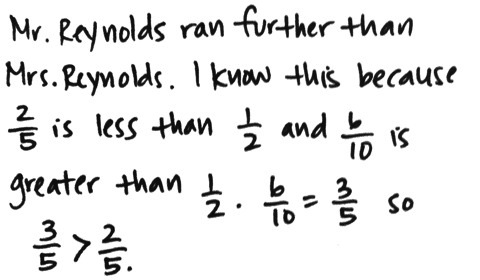 Mr. Reynolds ran further than
Mrs. Reynolds. I know this because
2/5 is less than 1/2 and 6/10 is
greater than 1/2. 6/10 = 3/5 so
3/5 > 2/5.